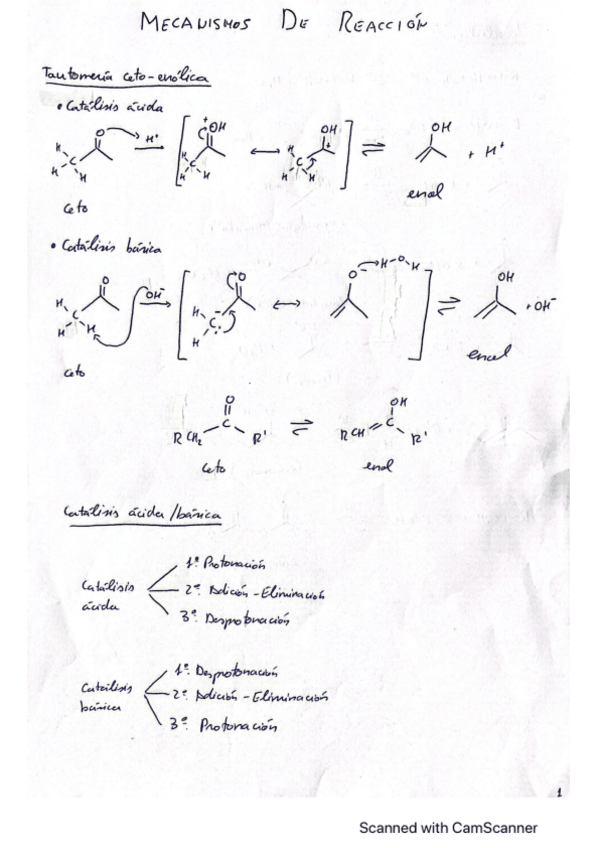 MECANISMOS DE REACCIÓN
Tautomería ceto-enólica
• Catálisis ácida
O H+ + OH OH + OH + H+
H H C H H C H H C H H
ceto enol
• Catálisis básica
O OH- O O- H-O-H OH + OH-
H C H H H C: - H
ceto enol
O OH
R CH2 C R' ⇌ R CH = C R'
ceto enol
Catálisis ácida/básica
1º. Protonación
Catálisis ácida 2º. Adición-Eliminación
3º. Desprotonación
1º. Desprotonación
Catálisis básica 2º. Adición-Eliminación
3º. Protonación
1
Scanned with CamScanner